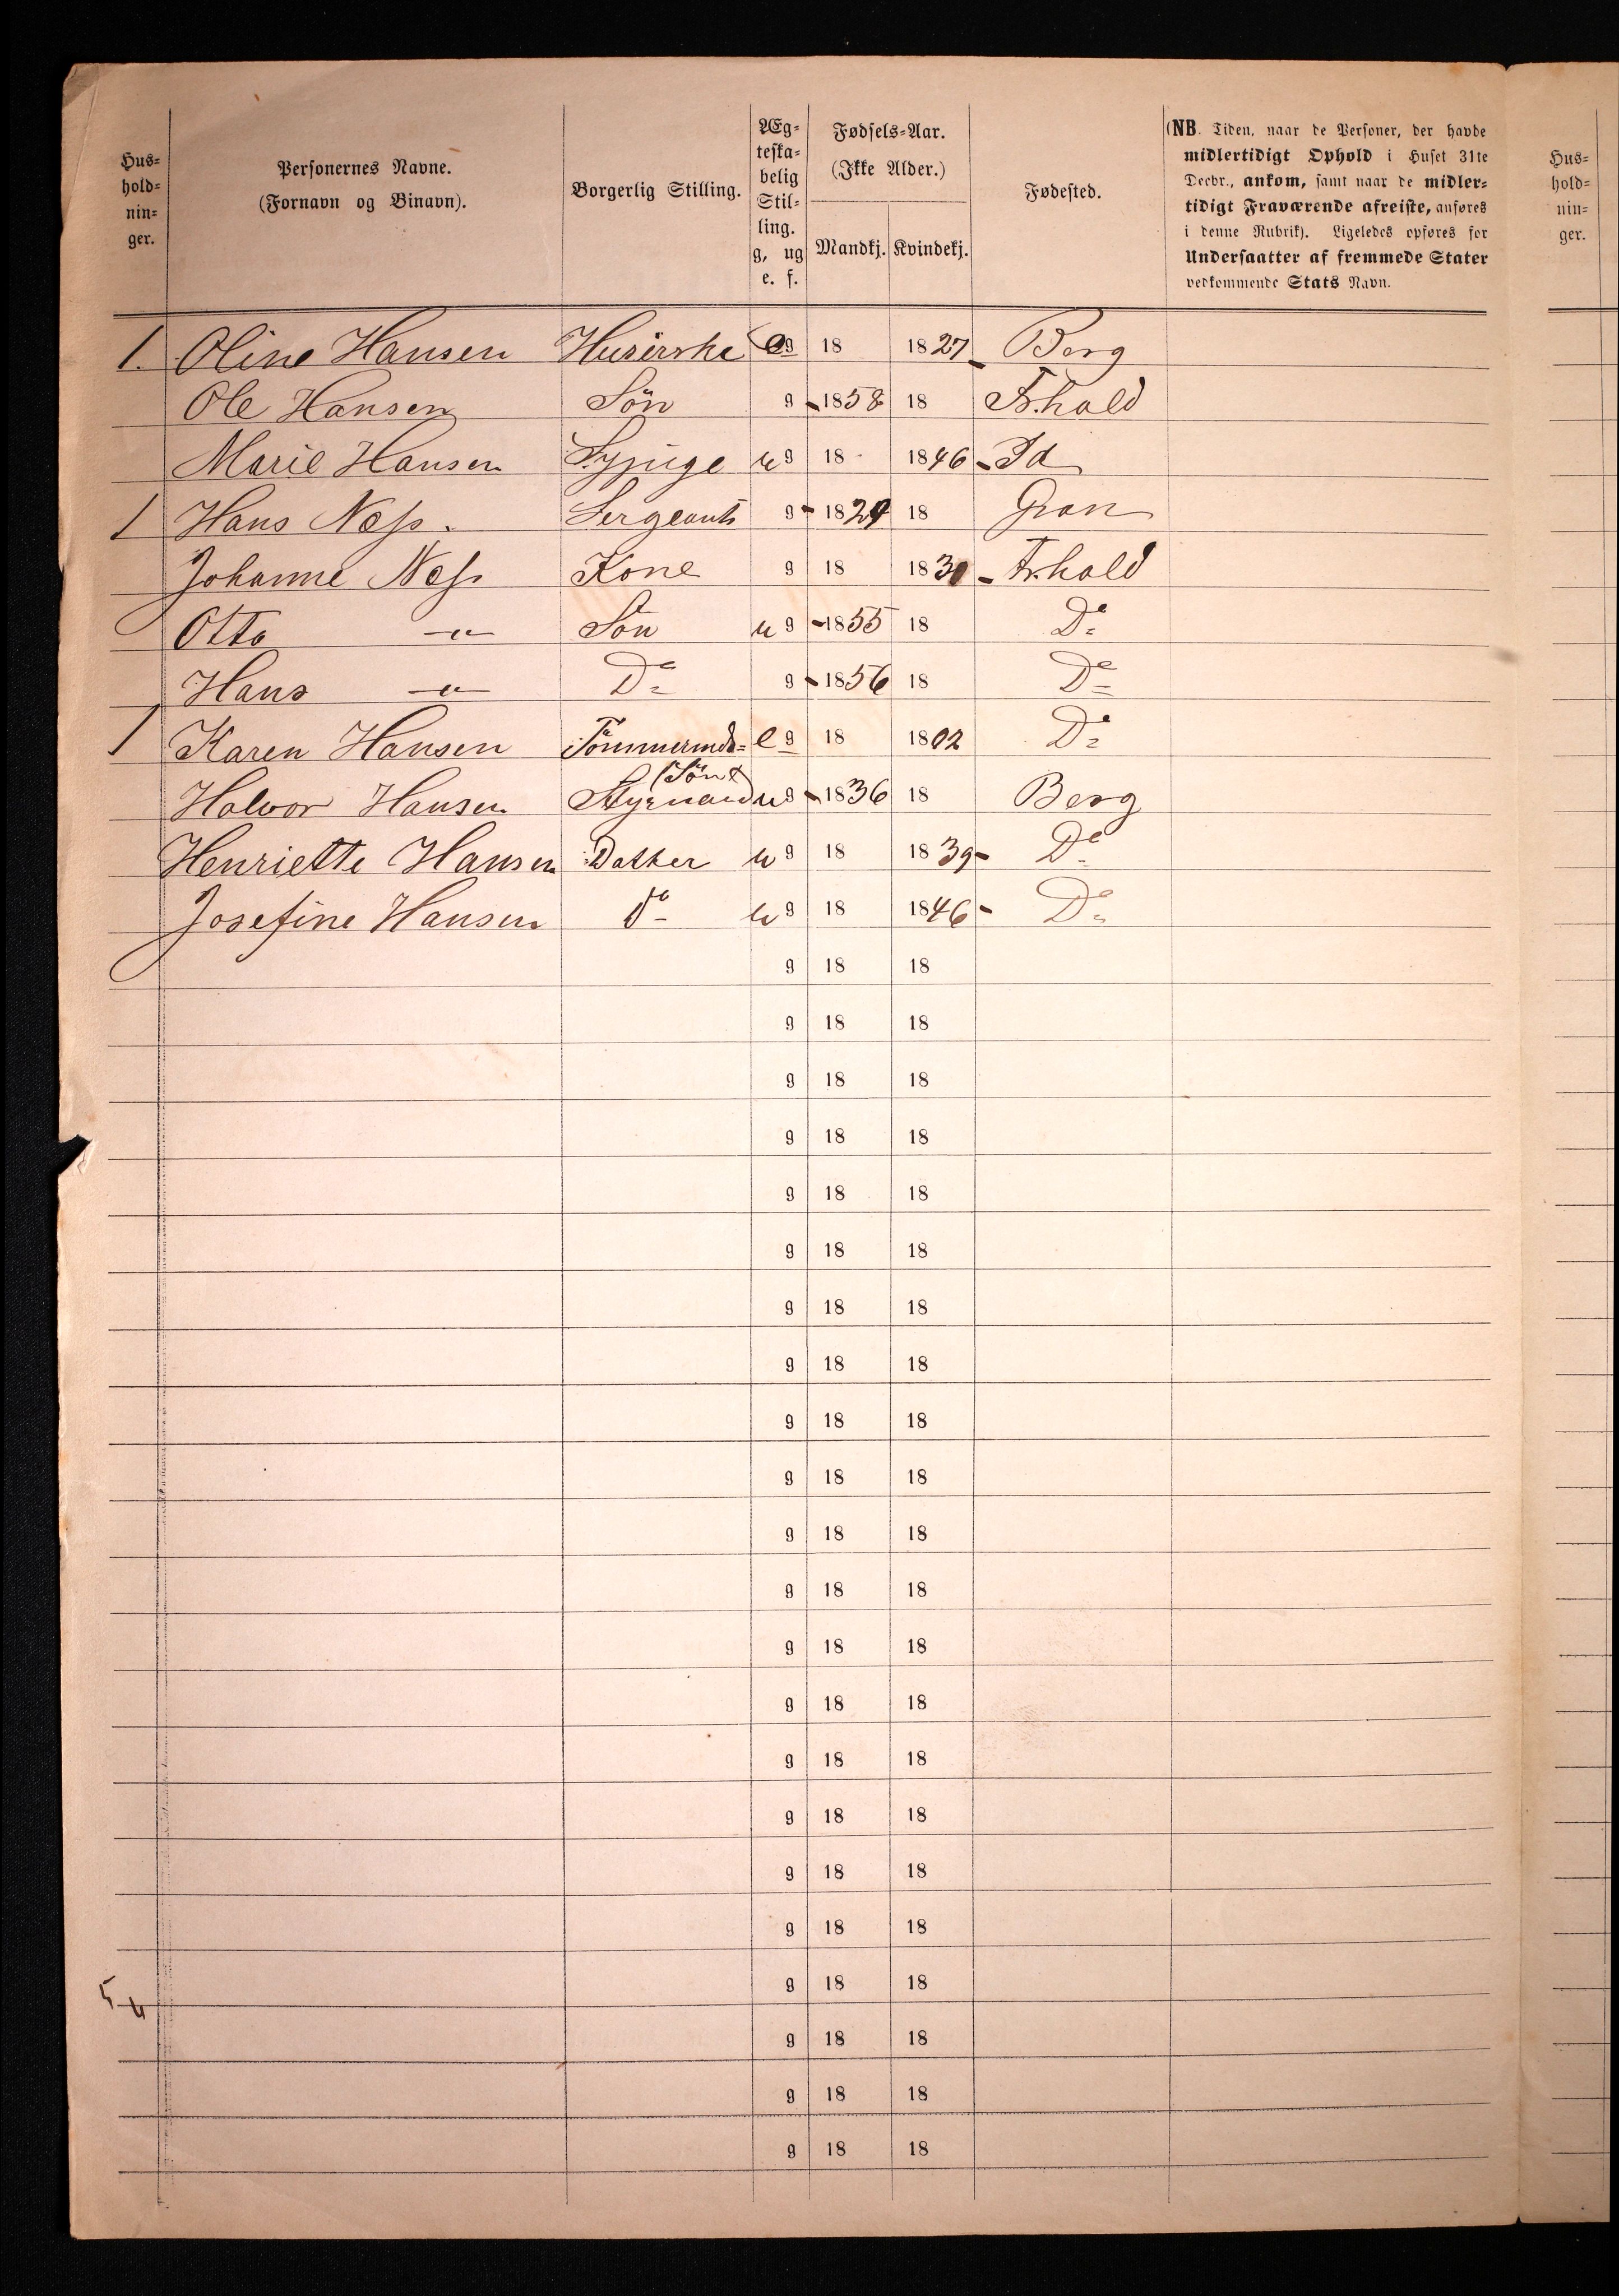 Hus-
hold-
nin-
ger.
Personernes Navne.
(Fornavn og Binavn).
Borgerlig Stilling.
Æg-
teska-
belig
Stil-
ling.
g, ug
e. f.
Fødsels-Aar.
(Ikke Alder.)
Mandkj. Kvindekj.
Fødested.
(NB. Tiden, naar de Personer, der havde
midlertidigt Ophold i Huset 31te
Decbr., ankom, samt naar de midler-
tidigt Fraværende afreiste, anføres
i denne Rubrik). Ligeledes opføres for
Undersaatter af fremmede Stater
vedkommende Stats Navn.
Hus-
hold-
nin-
ger.
1. Oline Hansen Huseierske e g 18 1827 - Berg
Ole Hansen Sön g - 1858 18 Fr.hald
Marie Hansen Sypige u g 18 1846 - Id
1 Hans Ness. Sergeant g - 1829 18 Gran
Johanne Ness Kone g 18 1830 - Fr.hald
Otto -"- Sön u g - 1855 18 Do
Hans -"- Do g - 1856 18 Do
1 Karen Hansen Tömmermds= e g 18 1802 Do
(Sön
Halvor Hansen Styrmand u g - 1836 18 Berg
Henriette Hansen Datter u g 18 1839 - Do
Josefine Hansen do u g 18 1846 - Do
g 18 18
g 18 18
g 18 18
g 18 18
g 18 18
g 18 18
g 18 18
g 18 18
g 18 18
g 18 18
g 18 18
g 18 18
g 18 18
g 18 18
g 18 18
g 18 18
g 18 18
g 18 18
g 18 18
g 18 18
g 18 18
g 18 18